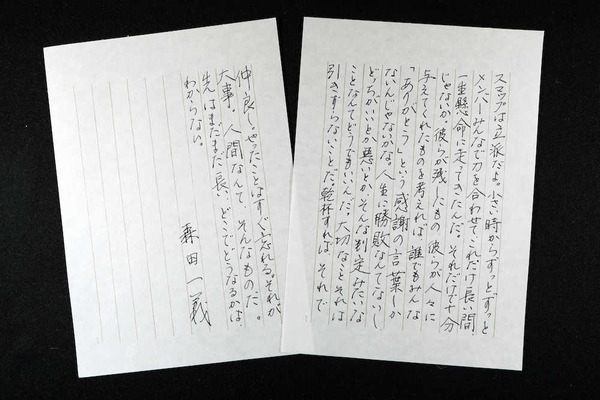 スマップは立派だよ。小さい時からずっとずっと
メンバーみんなで力を合わせてこれだけ長い間、
一生懸命に走ってきたんだ。それだけで十分
じゃないか。彼らが残したもの彼らが人々に
与えてくれたものを考えれば、誰でもみんな
「ありがとう」という感謝の言葉しか
ないんじゃないかな。人生に勝敗なんてないし、
どっちがいいとか悪いとかそんな判定みたいな
ことなんてどうでもいいんだ。大切なことそれは
引きずらないことだ。乾杯すれば それで
仲良し。やったことはすぐ忘れる。それが
大事。人間なんて、そんなものだ。
先はまだまだ長い、どこでどうなるかは、
わからない。
森田一義